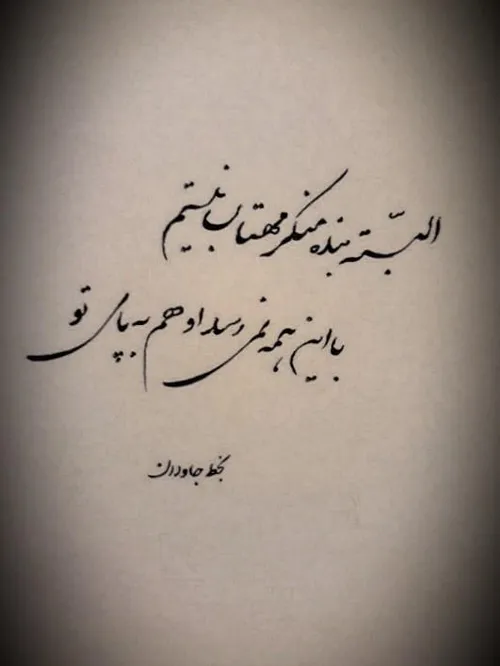 البتّه بنده منکر مهتاب نیستم
با این همه نمی رسد او هم به پای تو
بخط جاودان